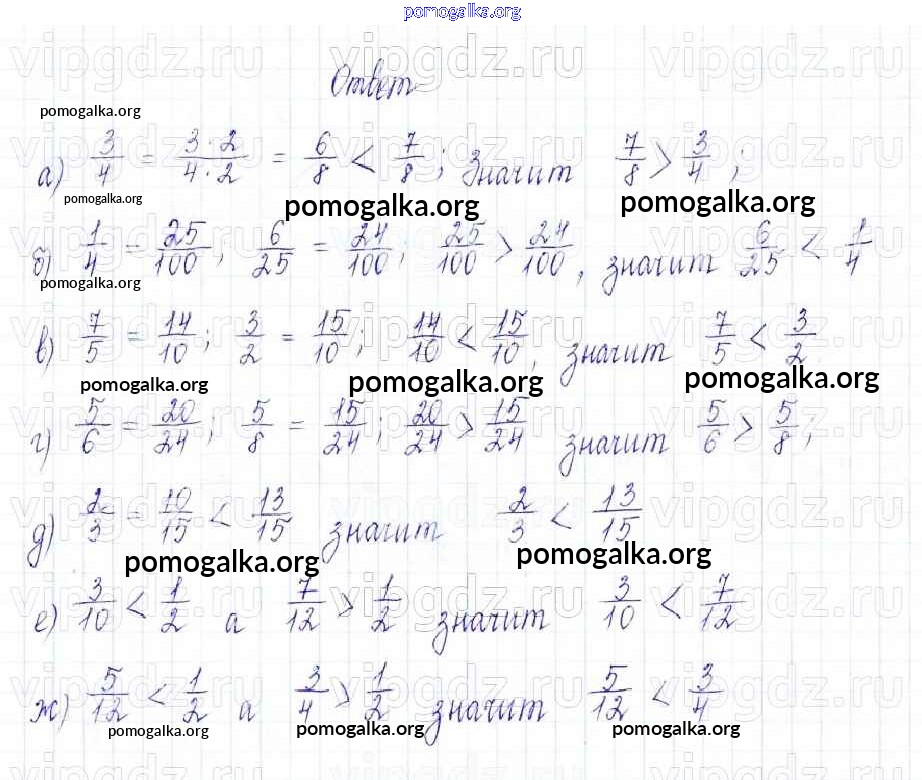 pomogalka.org
Ответ
pomogalka.org
а) 3/4 = 3·2/4·2 = 6/8 < 7/8; Значит 7/8 > 3/4;
pomogalka.org pomogalka.org pomogalka.org
б) 1/4 = 25/100; 6/25 = 24/100; 25/100 > 24/100, значит 6/25 < 1/4
pomogalka.org
в) 7/5 = 14/10; 3/2 = 15/10; 14/10 < 15/10, значит 7/5 < 3/2
pomogalka.org pomogalka.org pomogalka.org
г) 5/6 = 20/24; 5/8 = 15/24; 20/24 > 15/24 значит 5/6 > 5/8;
д) 2/3 = 10/15 < 13/15 значит 2/3 < 13/15
pomogalka.org pomogalka.org
е) 3/10 < 1/2 а 7/12 > 1/2 значит 3/10 < 7/12
ж) 5/12 < 1/2 а 3/4 > 1/2 значит 5/12 < 3/4
pomogalka.org pomogalka.org pomogalka.org